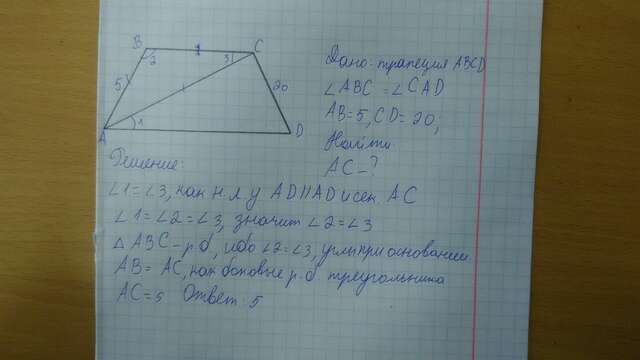 B
2
3
C
5
20
A
1
D
Дано: трапеция ABCD
∠ABC = ∠CAD
AB=5, CD=20,
Найти
AC-?
Решение:
∠1=∠3, как н.л.у AD||AD и сек. AC
∠1=∠2=∠3, значит ∠2=∠3
△ABC-р.б, ибо ∠2=∠3, углы при основании
AB=AC, как боковые р.б. треугольника
AC=5 Ответ: 5